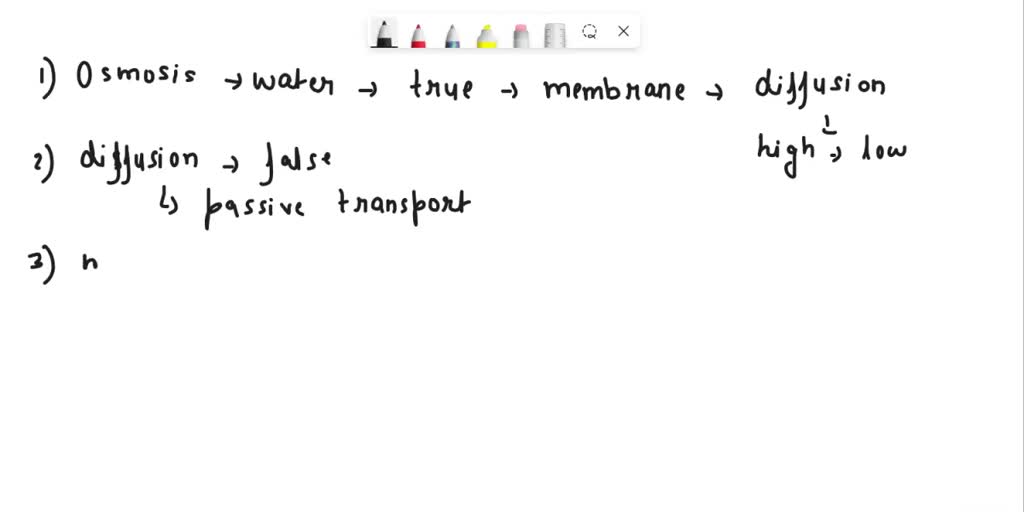 1) Osmosis → water → true → membrane → diffusion
↓
high → low
2) diffusion → false
↳ passive transport
3) n